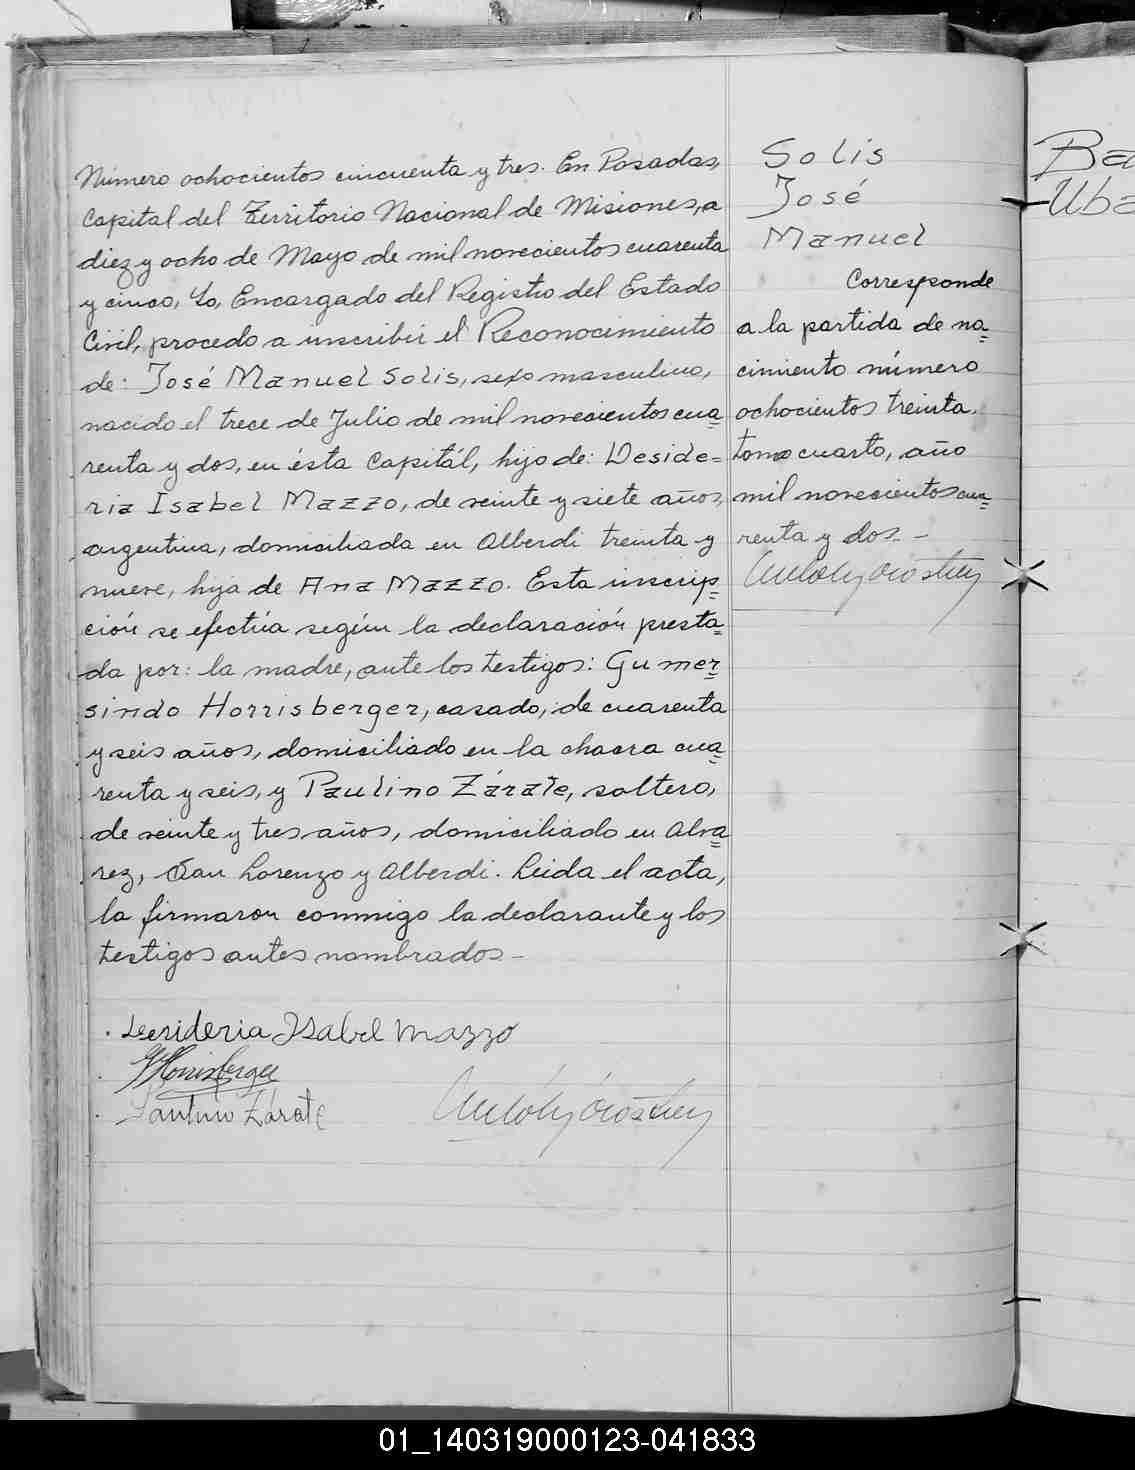 Número ochocientos cincuenta y tres. En Posadas,
Capital del Territorio Nacional de Misiones, a
diez y ocho de Mayo de mil novecientos cuarenta
y cinco, Yo, Encargado del Registro del Estado
Civil, procedo a inscribir el Reconocimiento
de: José Manuel Solis, sexo masculino,
nacido el trece de Julio de mil novecientos cua=
renta y dos, en ésta Capitál, hijo de: Deside=
ria Isabel Mazzo, de veinte y siete años,
argentina, domiciliada en Alberdi treinta y
nueve, hija de Ana Mazzo. Esta inscrip=
ción se efectúa según la declaración presta=
da por: la madre, ante los testigos: Gumer=
sindo Horrisberger, casado, de cuarenta
y seis años, domiciliado en la chacra cua=
renta y seis, y Paulino Zárate, soltero,
de veinte y tres años, domiciliado en Alva=
rez, San Lorenzo y Alberdi. Leida el acta,
la firmaron conmigo la declarante y los
testigos antes nombrados -
Desideria Isabel Mazzo
Horrisberger
Paulino Zárate
Solis
José
Manuel
Corresponde
a la partida de na=
cimiento número
ochocientos treinta,
tomo cuarto, año
mil novecientos cua=
renta y dos. -
Ba
Uba
01_140319000123-041833